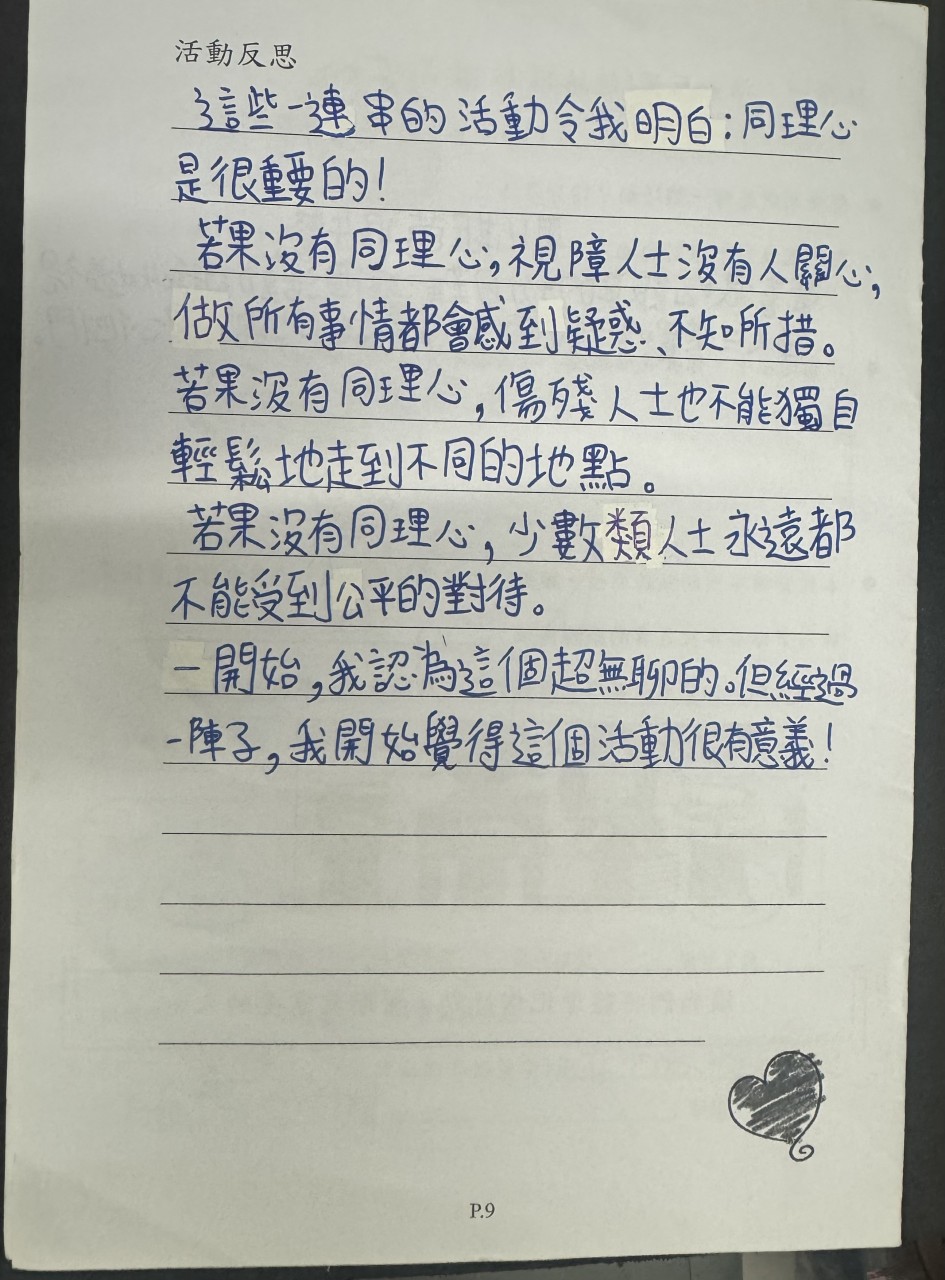 活動反思
這些一連串的活動令我明白:同理心
是很重要的!
若果沒有同理心,視障人士沒有人關心,
做所有事情都會感到疑惑、不知所措。
若果沒有同理心,傷殘人士也不能獨自
輕鬆地走到不同的地點。
若果沒有同理心,少數類人士永遠都
不能受到公平的對待。
一開始,我認為這個超無聊的。但經過
一陣子,我開始覺得這個活動很有意義!
P.9